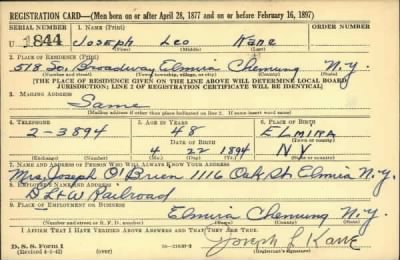 REGISTRATION CARD—(Men born on or after April 28, 1877 and on or before February 16, 1897)
SERIAL NUMBER 1. NAME (Print)
U 1844 Joseph Leo Kane
(First) (Middle) (Last)
2. PLACE OF RESIDENCE (Print)
518 So. Broadway Elmira Chemung N.Y.
(Number and street) (Town, township, village, or city) (County) (State)
[THE PLACE OF RESIDENCE GIVEN ON THE LINE ABOVE WILL DETERMINE LOCAL BOARD
JURISDICTION; LINE 2 OF REGISTRATION CERTIFICATE WILL BE IDENTICAL]
3. MAILING ADDRESS
Same
[Mailing address if other than place indicated on line 2. If same insert word same]
4. TELEPHONE 5. AGE IN YEARS 6. PLACE OF BIRTH
2-3894 48 ELMIRA
DATE OF BIRTH (Town or county)
4 22 1894 NY
(Mo.) (Day) (Yr.) (State or country)
7. NAME AND ADDRESS OF PERSON WHO WILL ALWAYS KNOW YOUR ADDRESS
Mrs Joseph O'Brien 1116 Oak St Elmira N.Y.
8. EMPLOYER'S NAME AND ADDRESS
D L & W Railroad
9. PLACE OF EMPLOYMENT OR BUSINESS
Elmira Chemung N.Y.
(Number and street or R. F. D. number) (Town) (County) (State)
I AFFIRM THAT I HAVE VERIFIED ABOVE ANSWERS AND THAT THEY ARE TRUE.
D. S. S. Form 1
(Revised 4-1-42) (over)
Joseph L Kane
(Registrant's signature)